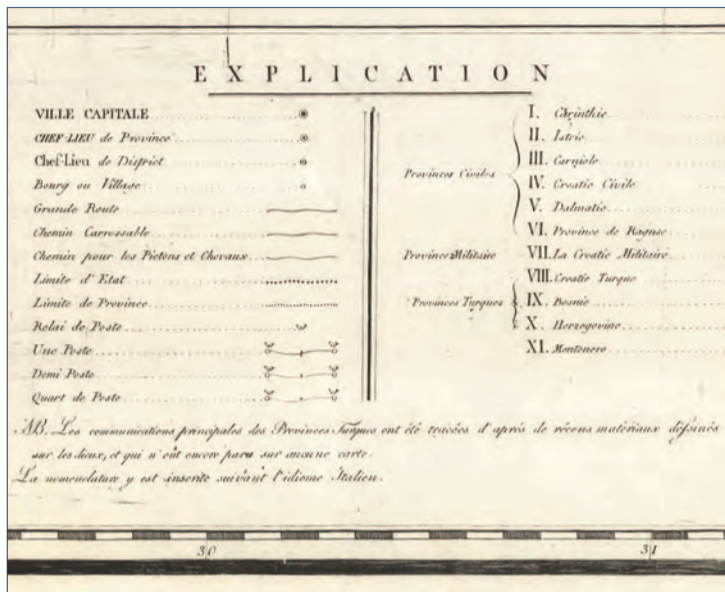 EXPLICATION
VILLE CAPITALE
CHEF-LIEU de Province
Chef-Lieu de District
Bourg ou Village
Grande Route
Chemin Carrossable
Chemin pour les Pietons et Chevaux
Limite d'Etat
Limite de Province
Relai de Poste
Une Poste
Demi Poste
Quart de Poste
Provinces Civiles
I. Carinthie
II. Istrie
III. Carniole
IV. Croatie Civile
V. Dalmatie
VI. Province de Raguse
Province Militaire
VII. La Croatie Militaire
Provinces Turques
VIII. Croatie Turque
IX. Bosnie
X. Herzegovine
XI. Montenero
NB. Les communications principales des Provinces Turques ont été tracées d'après de récens matériaux dessinés
sur les lieux, et qui n'ont encore paru sur aucune carte.
La nomenclature y est inscrite suivant l'idiome Italien.
30 31